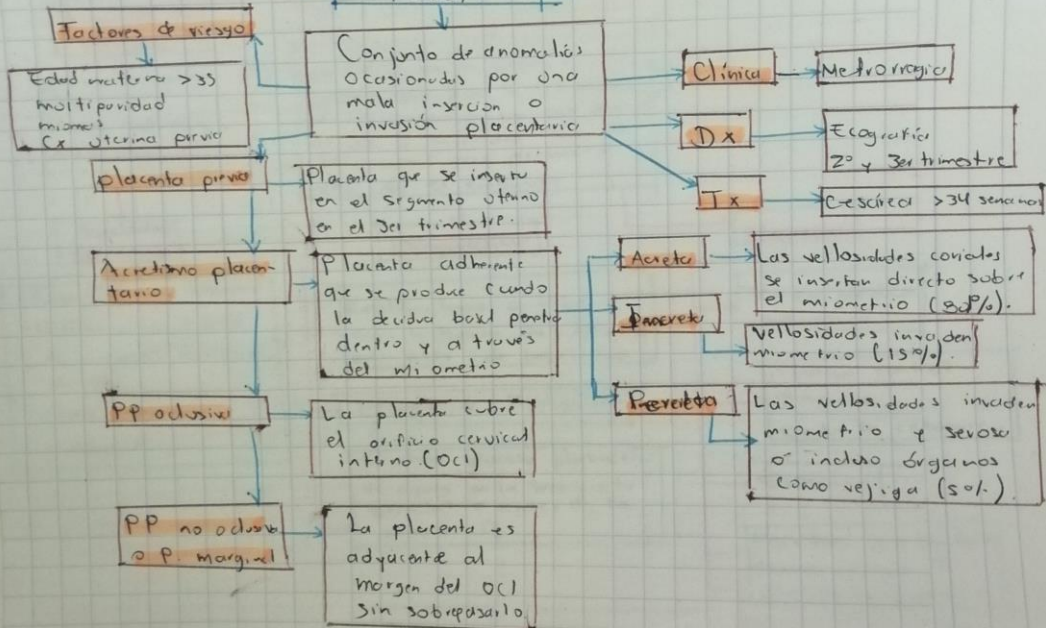 Factores de riesgo
Edad materna >35
multiparidad
miomas
Cx uterina previa
Conjunto de anomalias
ocasionadas por una
mala inserción o
invasión placentaria
Clínica
Metrorragia
Dx
Ecografía
2° y 3er trimestre
Tx
Cesárea >34 semanas
placenta previa
Placenta que se inserta
en el segmento uterino
en el 3er trimestre.
Acretismo placen-
tario
Placenta adherente
que se produce cuando
la decidua basal penetra
dentro y a través
del miometrio
Acreta
Las vellosidades coriales
se insertan directo sobre
el miometrio (80%).
Increta
Vellosidades invaden
miometrio (15%).
Percreta
Las vellosidades invaden
miometrio y serosa
o incluso órganos
como vejiga (5%).
PP oclusiva
La placenta cubre
el orificio cervical
interno (OCI)
PP no oclusiva
o P. marginal
La placenta es
adyacente al
margen del OCI
sin sobrepasarlo